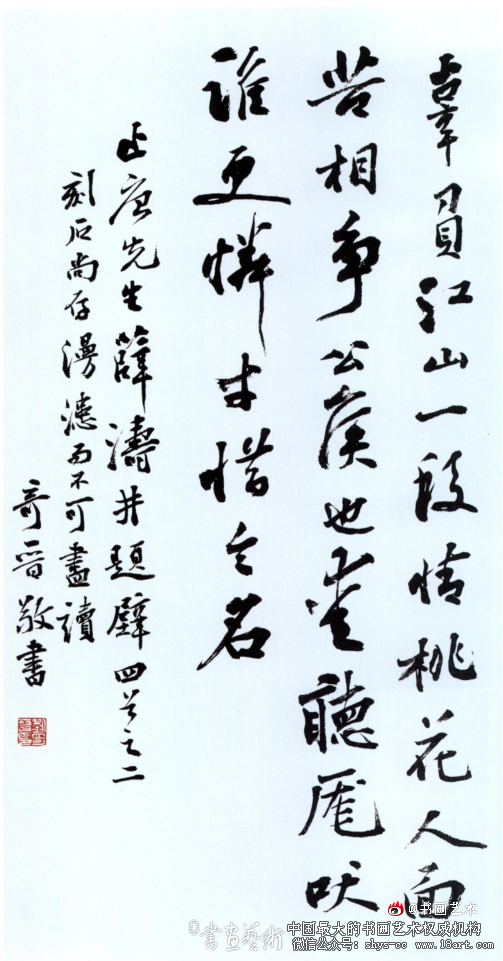 辜負江山一段情桃花人面
苦相爭公侯也愛聽尨吠
誰更憐才惜名
止唐先生薛濤井題壁四首之二
刻石尚存漫漶而不可盡讀
奇晉敬書
@书画艺术
書画藝術
中国最大的书画艺术权威机构
微信公众号: shys-cc www.18art.com